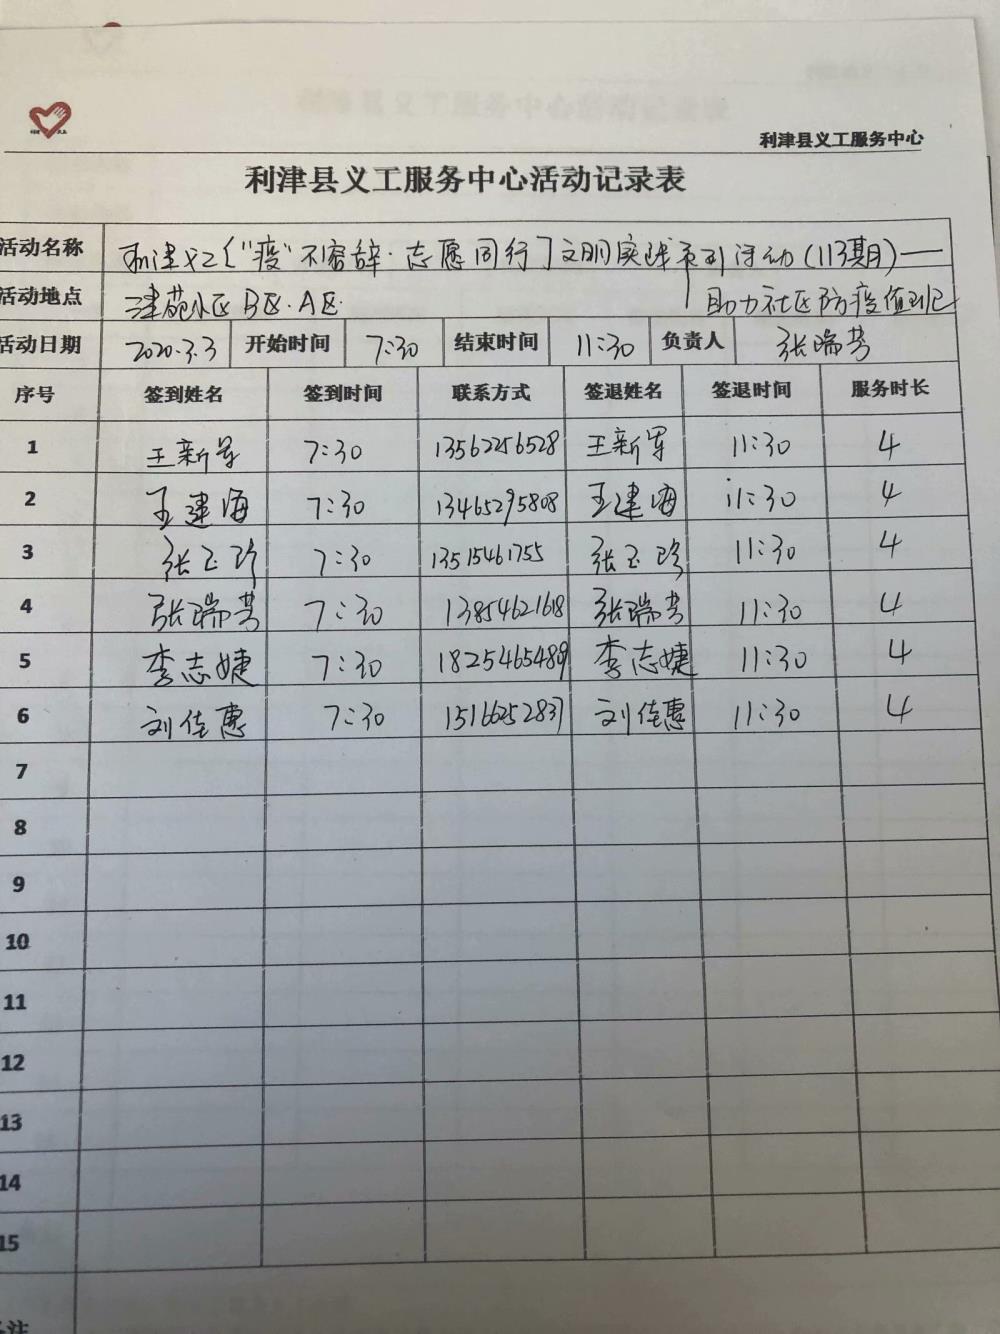 利津县义工服务中心
利津县义工服务中心活动记录表
活动名称 利津义工{"疫"不容辞·志愿同行}文明实践系列活动(113期)——
助力社区防疫值班
活动地点 津苑小区B区·A区·
活动日期 2020.3.3 开始时间 7:30 结束时间 11:30 负责人 张瑞芳
序号 签到姓名 签到时间 联系方式 签退姓名 签退时间 服务时长
1 王新军 7:30 13562256528 王新军 11:30 4
2 王建海 7:30 13465295808 王建海 11:30 4
3 张玉珍 7:30 13515461755 张玉珍 11:30 4
4 张瑞芳 7:30 13854621618 张瑞芳 11:30 4
5 李志婕 7:30 18254654889 李志婕 11:30 4
6 刘佳惠 7:30 15166252837 刘佳惠 11:30 4
7
8
9
10
11
12
13
14
15
备注